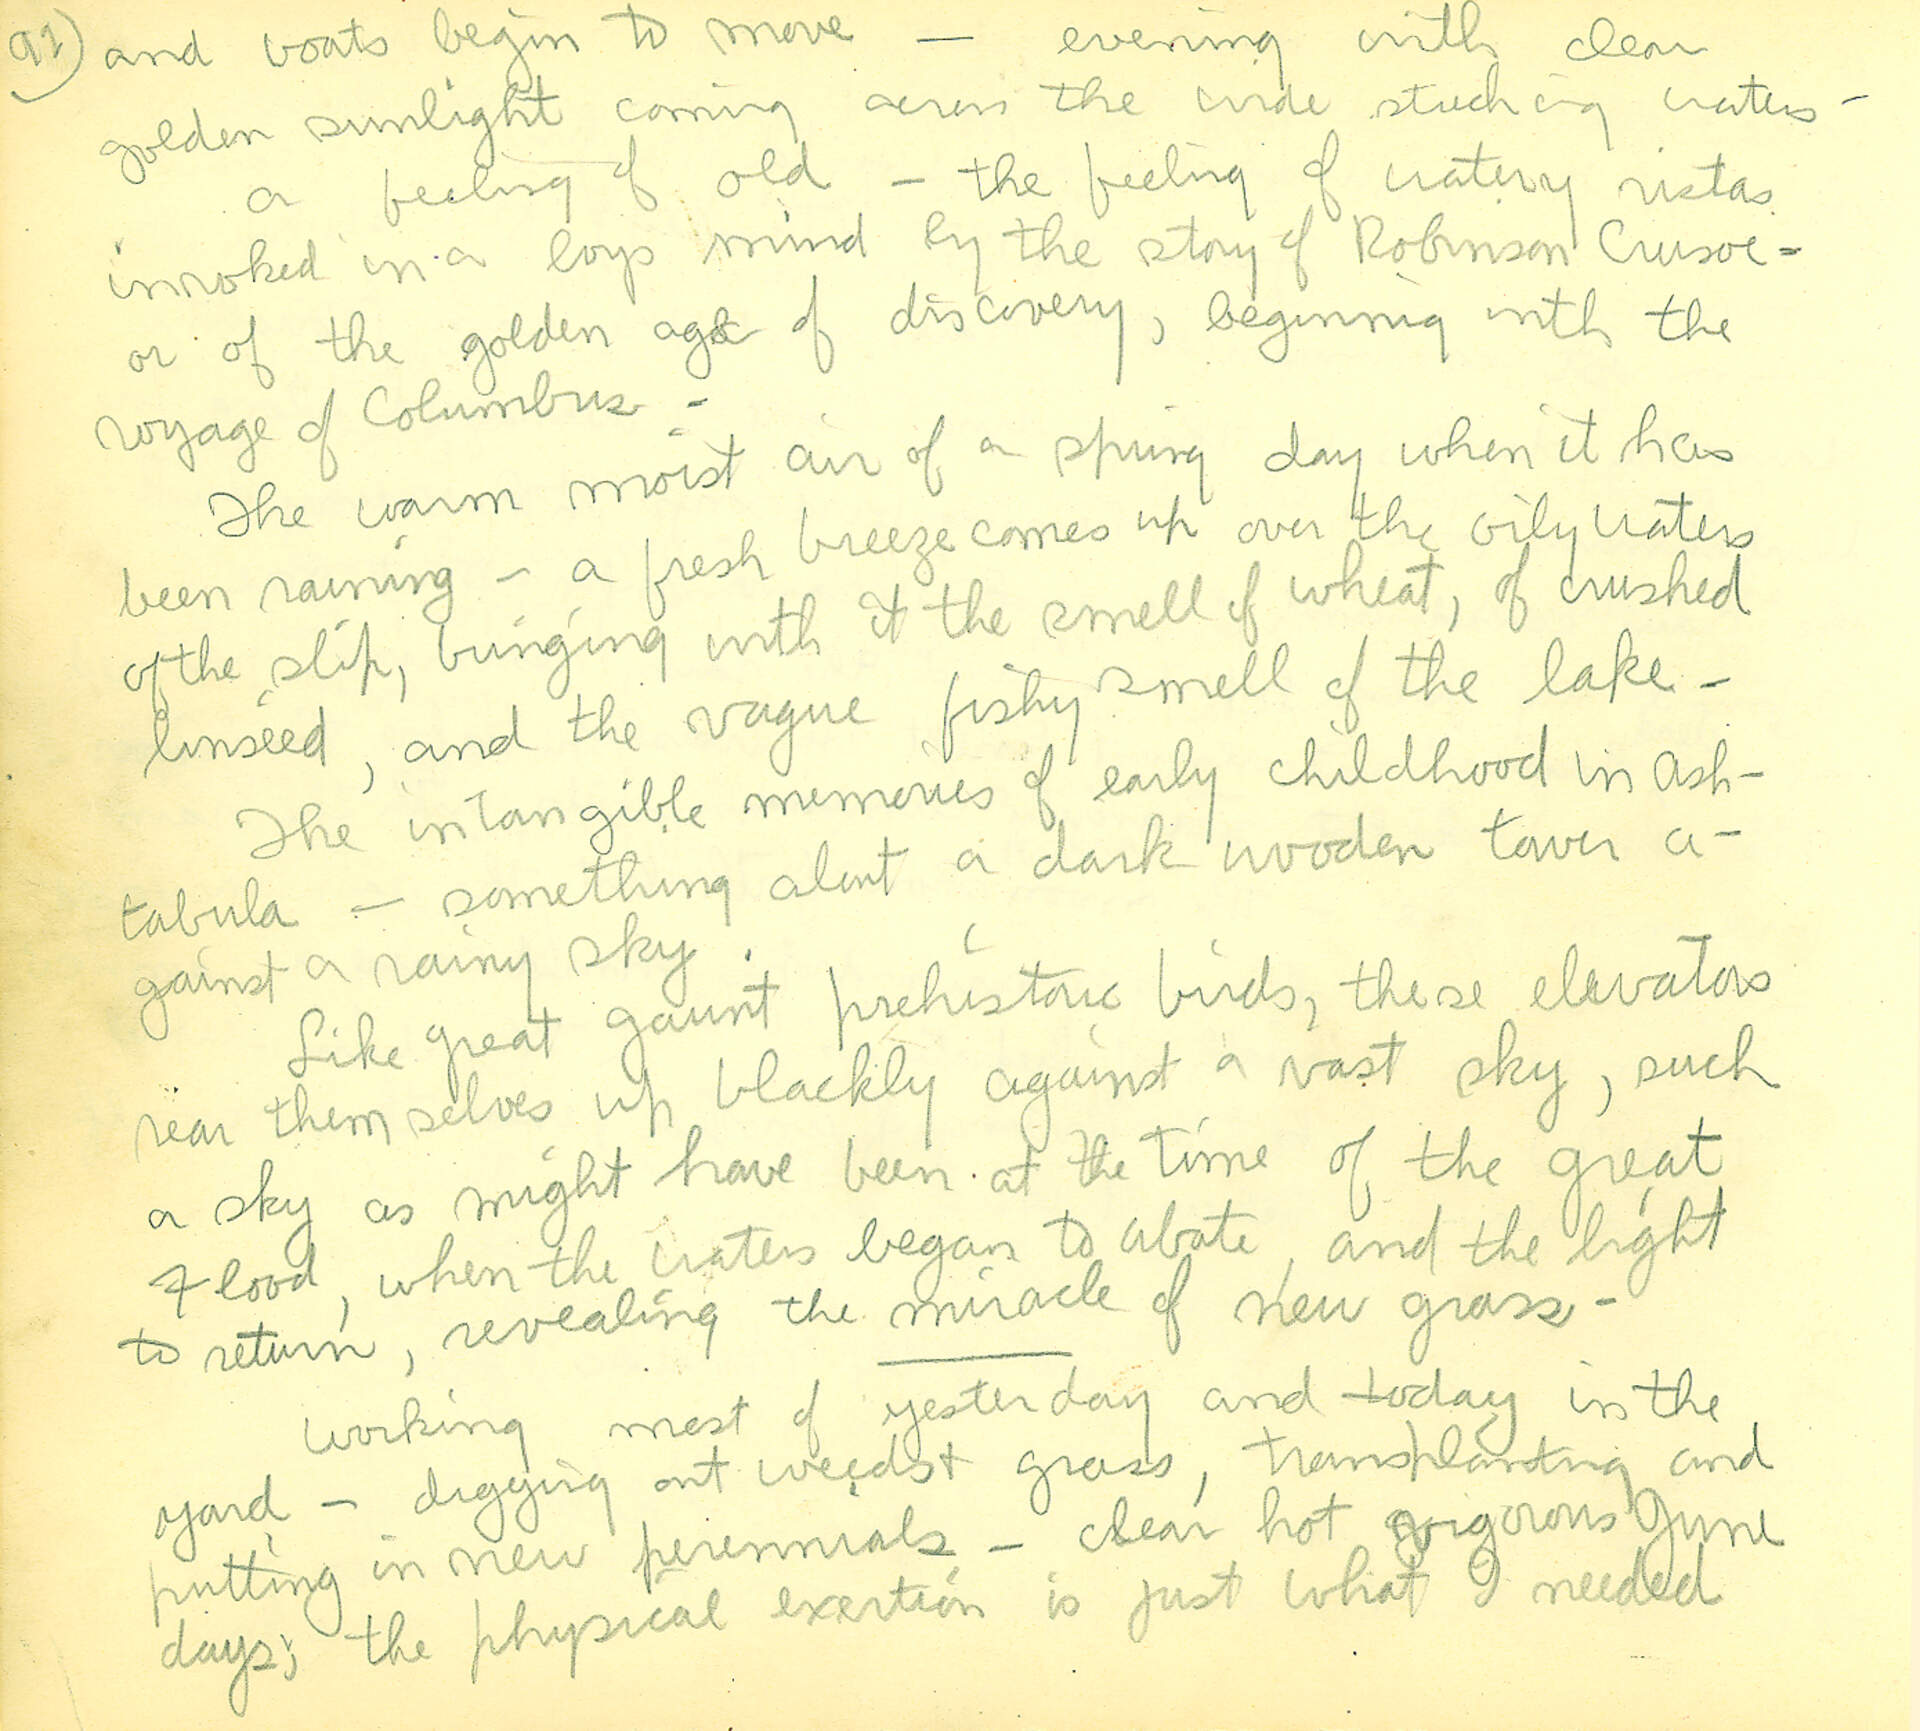 92) and boats begin to move — evening with clear
golden sunlight coming across the wide stretching waters —
a feeling of old — the feeling of watery vistas
invoked in a boys mind by the story of Robinson Crusoe -
or of the golden age of discovery, beginning with the
voyage of Columbus -
The warm moist air of a spring day when it has
been raining — a fresh breeze comes up over the oily waters
of the slip, bringing with it the smell of wheat, of crushed
linseed, and the vague fishy smell of the lake -
The intangible memories of early childhood in Ash-
tabula — something about a dark wooden tower a-
gainst a rainy sky.
Like great gaunt prehistoric birds, these elevators
rear themselves up blackly against a vast sky, such
a sky as might have been at the time of the great
Flood, when the waters began to abate, and the light
to return, revealing the miracle of new grass -
Working most of yesterday and today in the
yard — digging out weeds + grass, transplanting and
putting in new perennials — clear hot vigorous June
days; the physical exertion is just what I needed